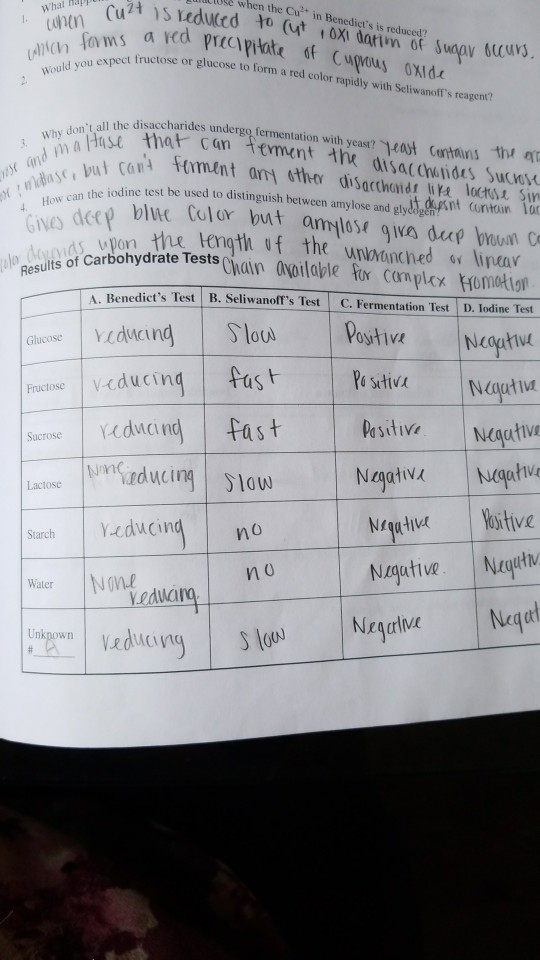 1. What when the Cu2+ in Benedict's is reduced?
when Cu2+ is reduced to Cu+, oxidation of sugar occurs.
which forms a red precipitate of Cuprous oxide
2. Would you expect fructose or glucose to form a red color rapidly with Seliwanoff's reagent?
3. Why don't all the disaccharides undergo fermentation with yeast? Yeast contains the
and maltase that can ferment the disaccharides sucrose
, but can't ferment any other disaccharide like lactose
it doesnt contain
4. How can the iodine test be used to distinguish between amylose and glycogen?
Gives deep blue color but amylose gives deep brown
color depends upon the length of the unbranched or linear
Chain available for complex fromation
Results of Carbohydrate Tests
A. Benedict's Test B. Seliwanoff's Test C. Fermentation Test D. Iodine Test
Glucose reducing Slow Positive Negative
Fructose reducing fast Positive Negative
Sucrose reducing fast Positive Negative
Lactose None reducing slow Negative Negative
Starch reducing no Negative Positive
Water None reducing. no Negative. Negativ
Unknown # A reducing slow Negative Negat